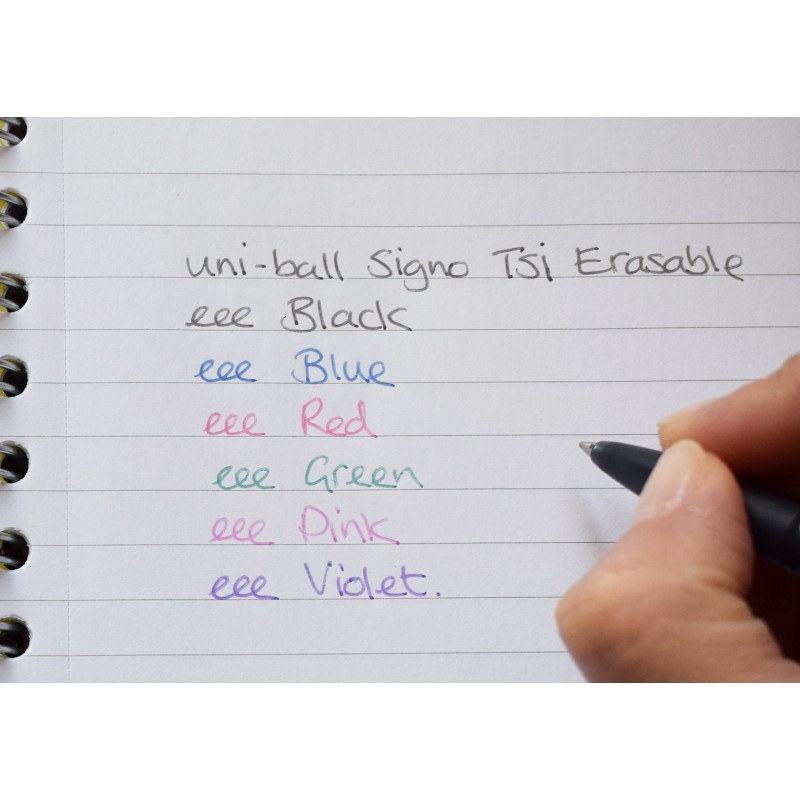 uni-ball Signo TSi Erasable
eee Black
eee Blue
eee Red
eee Green
eee Pink
eee Violet.